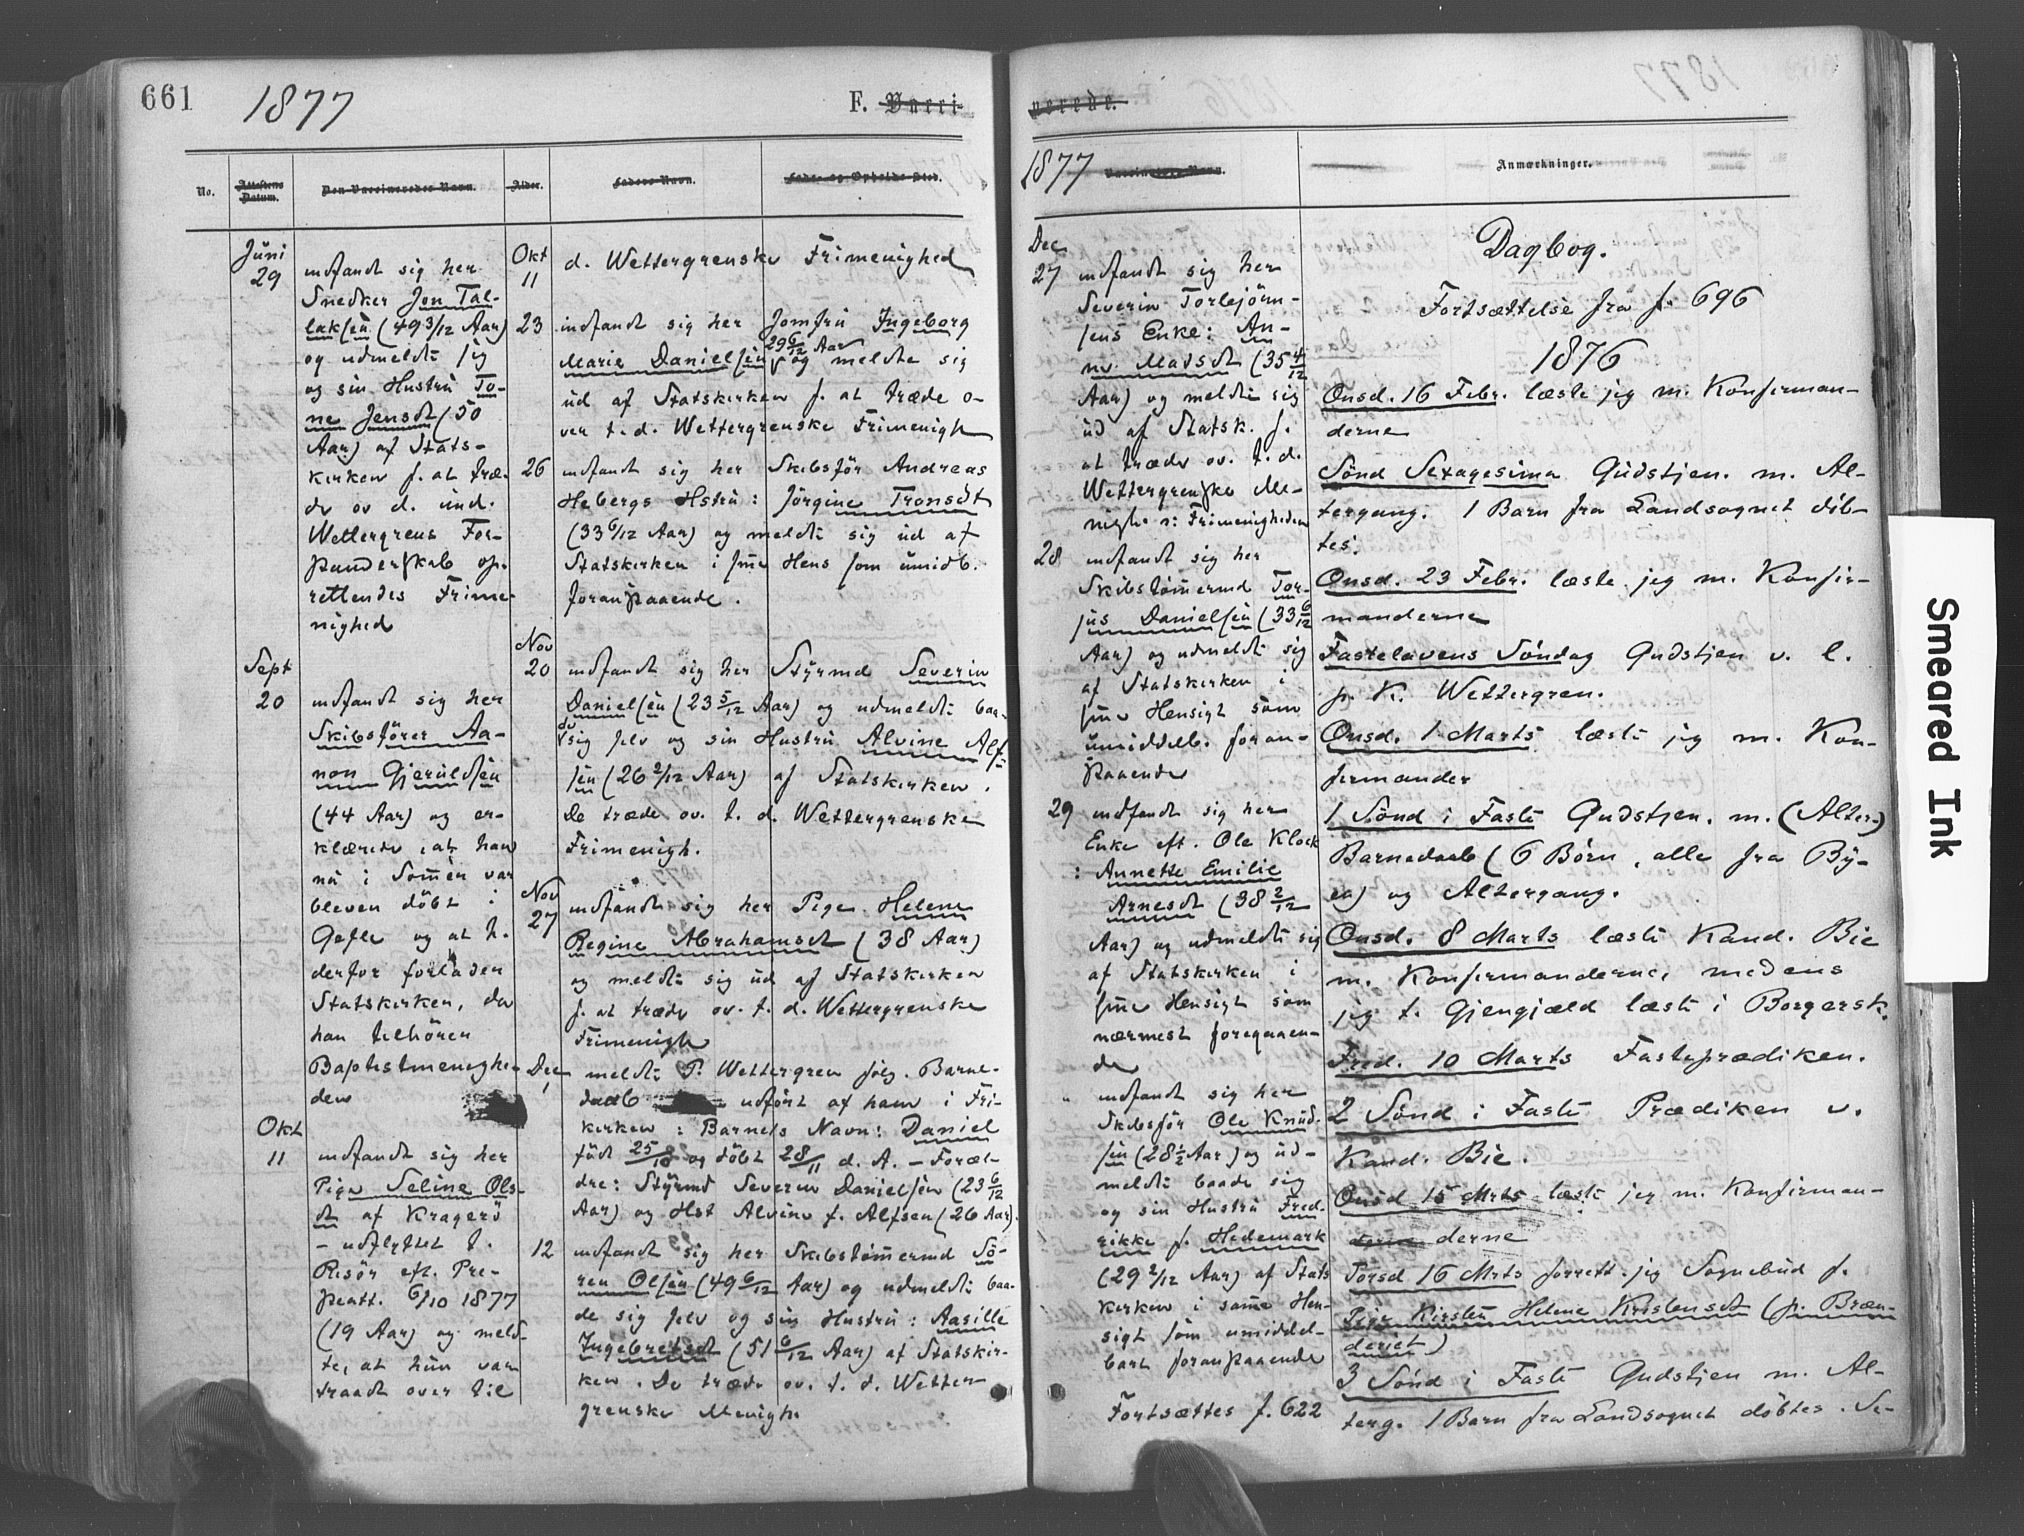 661
1877
F. Vacci-
No.
Attestens Datum.
Den Vaccineredes Navn.
Alder.
Faders Navn.
Føde- og Opholds-Sted.
Juni
29
indfandt sig her
Snedker Jon Tal-
laksen (49 3/12 Aar)
og udmeldte sig
og sin Hustru To-
ne Jensdt (50
Aar) af Stats-
kirken f. at træ-
de ov d. und.
Wettergrens For-
standerskab op-
rettendes Frime-
nighed
Sept
20
indfandt sig her
Skibsfører Aa-
non Gjeruldsen
(44 Aar) og er-
klærede, at han
nu i Somren var
bleven døbt i
Gefle og at h.
derfor forlader
Statskirken, da
han tilhører
Baptistmenighe-
den
Okt
11
indfandt sig her
Pige Seline Ols-
dt af Kragerö
- udflyttet t.
Risör eft. Pre-
steatt. 6/10 1877
(19 Aar) og meld-
te, at hun var
traadt over til
Okt
11
d. Wettergrenske Frimenighed
23
indfandt sig her Jomfru Ingeborg
29 6/12 Aar
Marie Danielsen og meldte sig
ud af Statskirken f. at træde o-
ver t. d. Wettergrenske Frimenigh
26
indfandt sig her Skibsför Andreas
Hebergs Hstru: Jörgine Tronsdt
(33 6/12 Aar) og meldte sig ud af
Statskirken i sme Hens som umidb.
foranstaaende.
Nov
20
indfandt sig her Styrmd Severin
Danielsen (23 5/12 Aar) og udmeldte baa-
de
sig selv og sin Hustru Alvine Alf-
sen (26 2/12 Aar) af Statskirken.
De træde ov. t. d. Wettergrenske
Frimenigh.
Nov
27
indfandt sig her Pige Helene
Regine Abrahamsdt (38 Aar)
og meldte sig ud af Statskirken
f. at træde ov. t. d. Wettergrenske
Frimenigh
Dec
1
meldte P. Wettergren følg. Barne-
daab udført af ham i Fri-
kirken: Barnets Navn: Daniel
født 25/10 og döbt 28/11 d. A. - Foræl-
dre: Styrmd Severin Danielsen (23 6/12
Aar) og Hst Alvine f. Alfsen (26 Aar).
12
indfandt sig her Skibstømermd Sö-
ren Olsen (49 6/12 Aar) og udmeldte baa-
de sig selv og sin Hustru: Aasille
Ingebretsdt (51 6/12 Aar) af Statskir-
ken. De træde ov. t. d. Wetter-
grenske Menigh
nerede.
1877
Vaccinators Navn.
Anmærkninger.
Dec
27
indfandt sig her
Severin Torbjörn-
sens Enke: An-
ne Madsdt (35 4/12
Aar) og meldte sig
ud af Statsk. f.
at træde ov. t. d.
Wettergrenske Me-
nighe: Frimenigheden
28
indfandt sig her
Skibstømermd Tor-
jus Danielsen (33 6/12
Aar) og udmeldte sig
af Statskirken i
sme Hensigt som
umiddelb. foran-
staaende
29
indfandt sig her
Enke eft. Ole Klock
: Annette Emilie
Arnesdt (38 2/12
Aar) og udmeldte sig
af Statskirken i
sme Hensigt som
nærmest foregaaen-
de
"
indfandt sig her
Skibsför Ole Knud-
sen (28 1/2 Aar) og ud-
meldte baade sig
og sin Hustru Fred-
rikke f. Hedemark
(29 2/12 Aar) af Stats
kirken i same Hen-
sigt som umiddel-
bart foranstaaende
Fortsættes f. 622
Dagbog.
Fortsættelse fra f. 696
1876
Onsd. 16 Febr. læste jeg m. Konfirman-
derne
Sönd Sexagesima Gudstjen. m. Al-
tergang. 1 Barn fra Landsognet döb-
tes.
Onsd. 23 Febr. læste jeg m. Konfir-
manderne
Fastelavens Söndag Gudstjen v. l.
p. K. Wettergren.
Onsd. 1 Marts læste jeg m. Kon-
firmander
1 Sönd i Faste Gudstjen. m. (Alter-)
Barnedaab (6 Børn, alle fra By-
en) og Altergang.
Onsd. 8 Marts læste Kand. Bie
m. Konfirmanderne, medens
jeg t. Gjengjæld læste i Borgersk.
Fred. 10 Marts Fasteprædiken.
2 Sönd i Faste Prædiken v.
Kand. Bie.
Onsd 15 Mrts læste jeg m. Konfirman-
derne
Torsd 16 Mrts forrett. jeg Sognebud f.
Pige Kirsten Helene Kristensdt (p. Bræn-
deriet)
3 Sönd i Faste Gudstjen m. Al-
terg. 1 Barn fra Landsognet döbtes. Se-
Smeared Ink